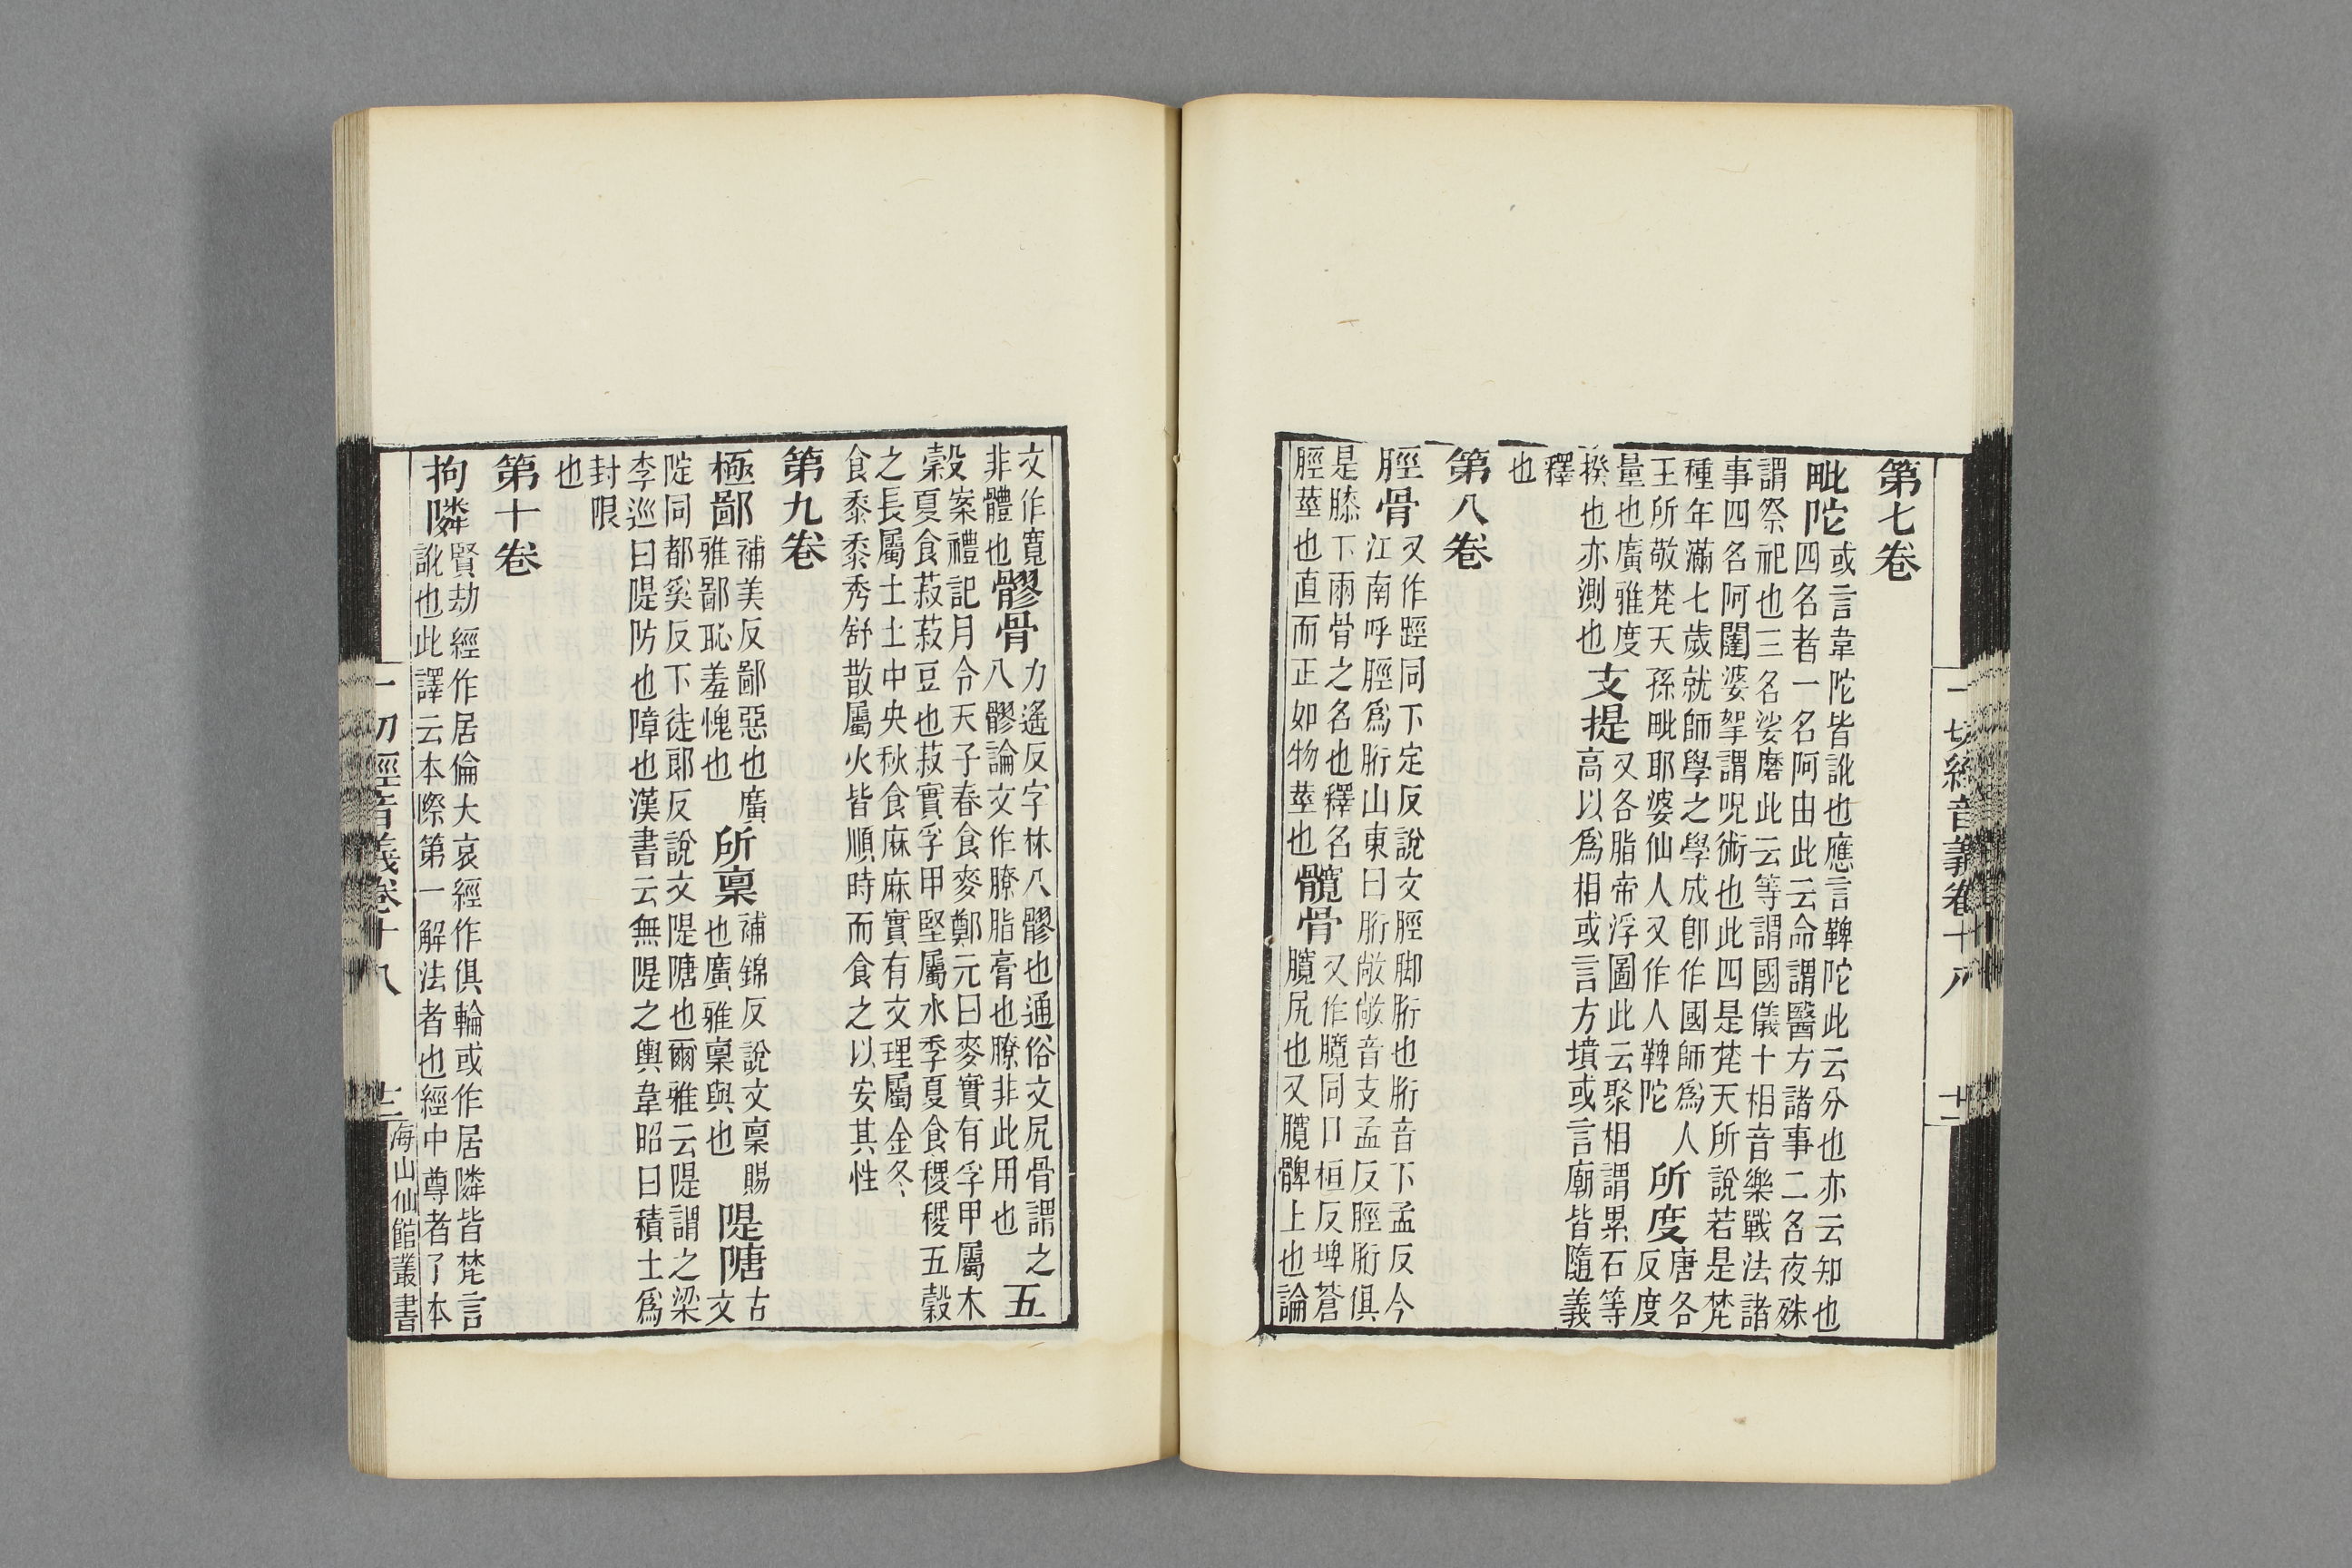 一切經音義卷十八 十二
第七卷
毗陀或言韋陀皆訛也應言鞞陀此云分也亦云知也四名者一名阿由此云命謂醫方諸事二名夜殊
謂祭祀也三名娑磨此云等謂國儀十相音樂戰法諸事四名阿闥婆拏謂呪術也此四是梵天所說若是梵
種年滿七歲就師學之學成卽作國師爲人王所敬梵天孫毗耶婆仙人又作人鞞陀所度唐各反度
量也廣雅度揆也亦測也支提又名脂帝浮圖此云聚相謂累石等高以爲相或言方墳或言廟皆隨義
釋也
第八卷
脛骨又作踁同下定反說文脛脚胻也胻音下孟反今江南呼脛爲胻山東曰胻敞敞音支孟反脛胻俱
是膝下兩骨之名也釋名脛莖也直而正如物莖也髖骨又作臗同口桓反埤蒼臗尻也又臗髀上也論
文作寬非體也髎骨力遙反字林八髎也通俗文尻骨謂之八髎論文作膫脂膏也膫非此用也五
穀案禮記月令天子春食麥鄭元曰麥實有孚甲屬木夏食菽菽豆也菽實孚甲堅屬水季夏食稷稷五穀
之長屬土土中央秋食麻麻實有文理屬金冬食黍黍秀舒散屬火皆順時而食之以安其性
第九卷
極鄙補美反鄙惡也廣雅鄙恥羞愧也所稟補錦反說文稟賜也廣雅稟與也隄隚古文
陡同都奚反下徒郎反說文隄隚也爾雅云隄謂之梁李巡曰隄防也障也漢書云無隄之輿韋昭曰積土爲
封限也
第十卷
拘隣賢劫經作居倫大哀經作俱輪或作居隣皆梵言訛也此譯云本際第一解法者也經中尊者了本
一切經音義卷十八 十二 海山仙館叢書